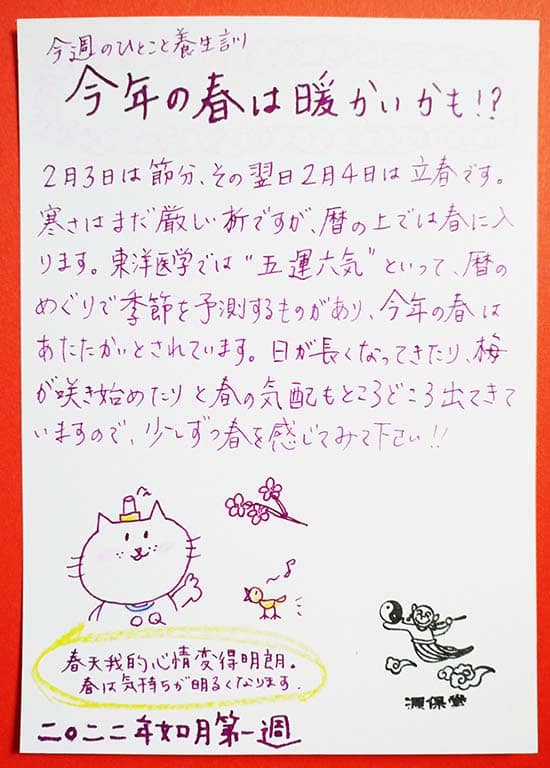 今週のひとこと養生訓
今年の春は暖かいかも!?
2月3日は節分、その翌日2月4日は立春です。
寒さはまだ厳しい折ですが、暦の上では春に入
ります。東洋医学では“五運六気”といって、暦の
めぐりで季節を予測するものがあり、今年の春は
あたたかいとされています。日が長くなってきたり、梅
が咲き始めたりと春の気配もところどころ出てきて
いますので、少しずつ春を感じてみて下さい!!
OQ
春天我的心情変得明朗。
春は気持ちが明るくなります.
源保堂
二〇二二年如月第一週